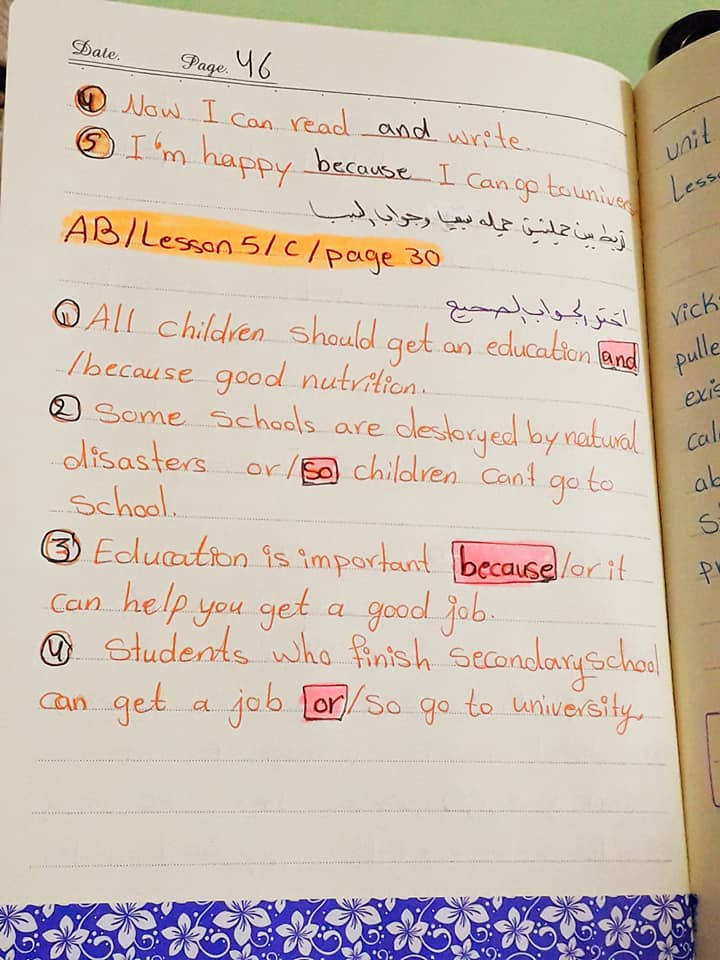 Date. Page. 46
④ Now I can read and write.
⑤ I'm happy because I can go to univers
تربط بين جملتين جمله سبب وجواب
AB/Lesson 5/C/page 30
اختر الجواب الصحيح
① All children should get an education and
/because good nutrition.
② Some schools are destoryed by natural
disasters or/so children can't go to
school.
③ Education is important because/or it
can help you get a good job.
④ Students who finish secondary school
can get a job or/so go to university.
unit
Less
vick
pulle
exis
cal
ab
S
pr